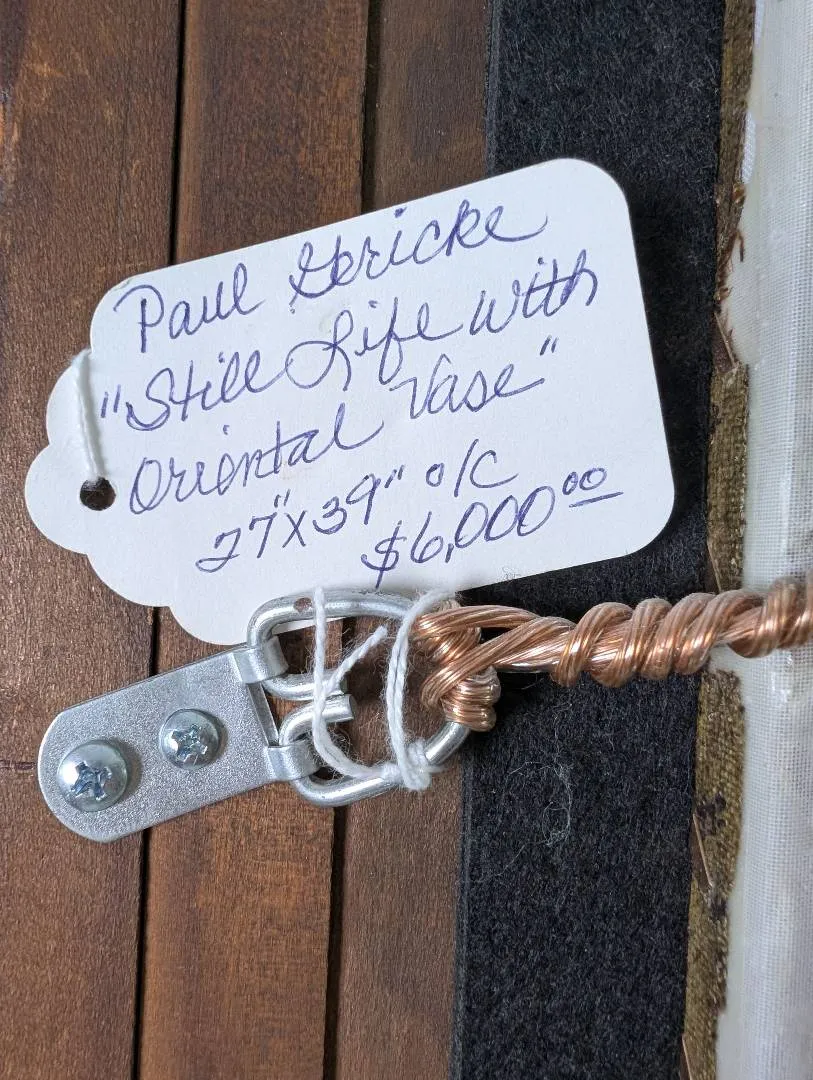 Paul Gericke
"Still Life with
Oriental Vase"
27"x39" o/c
$6,000.00